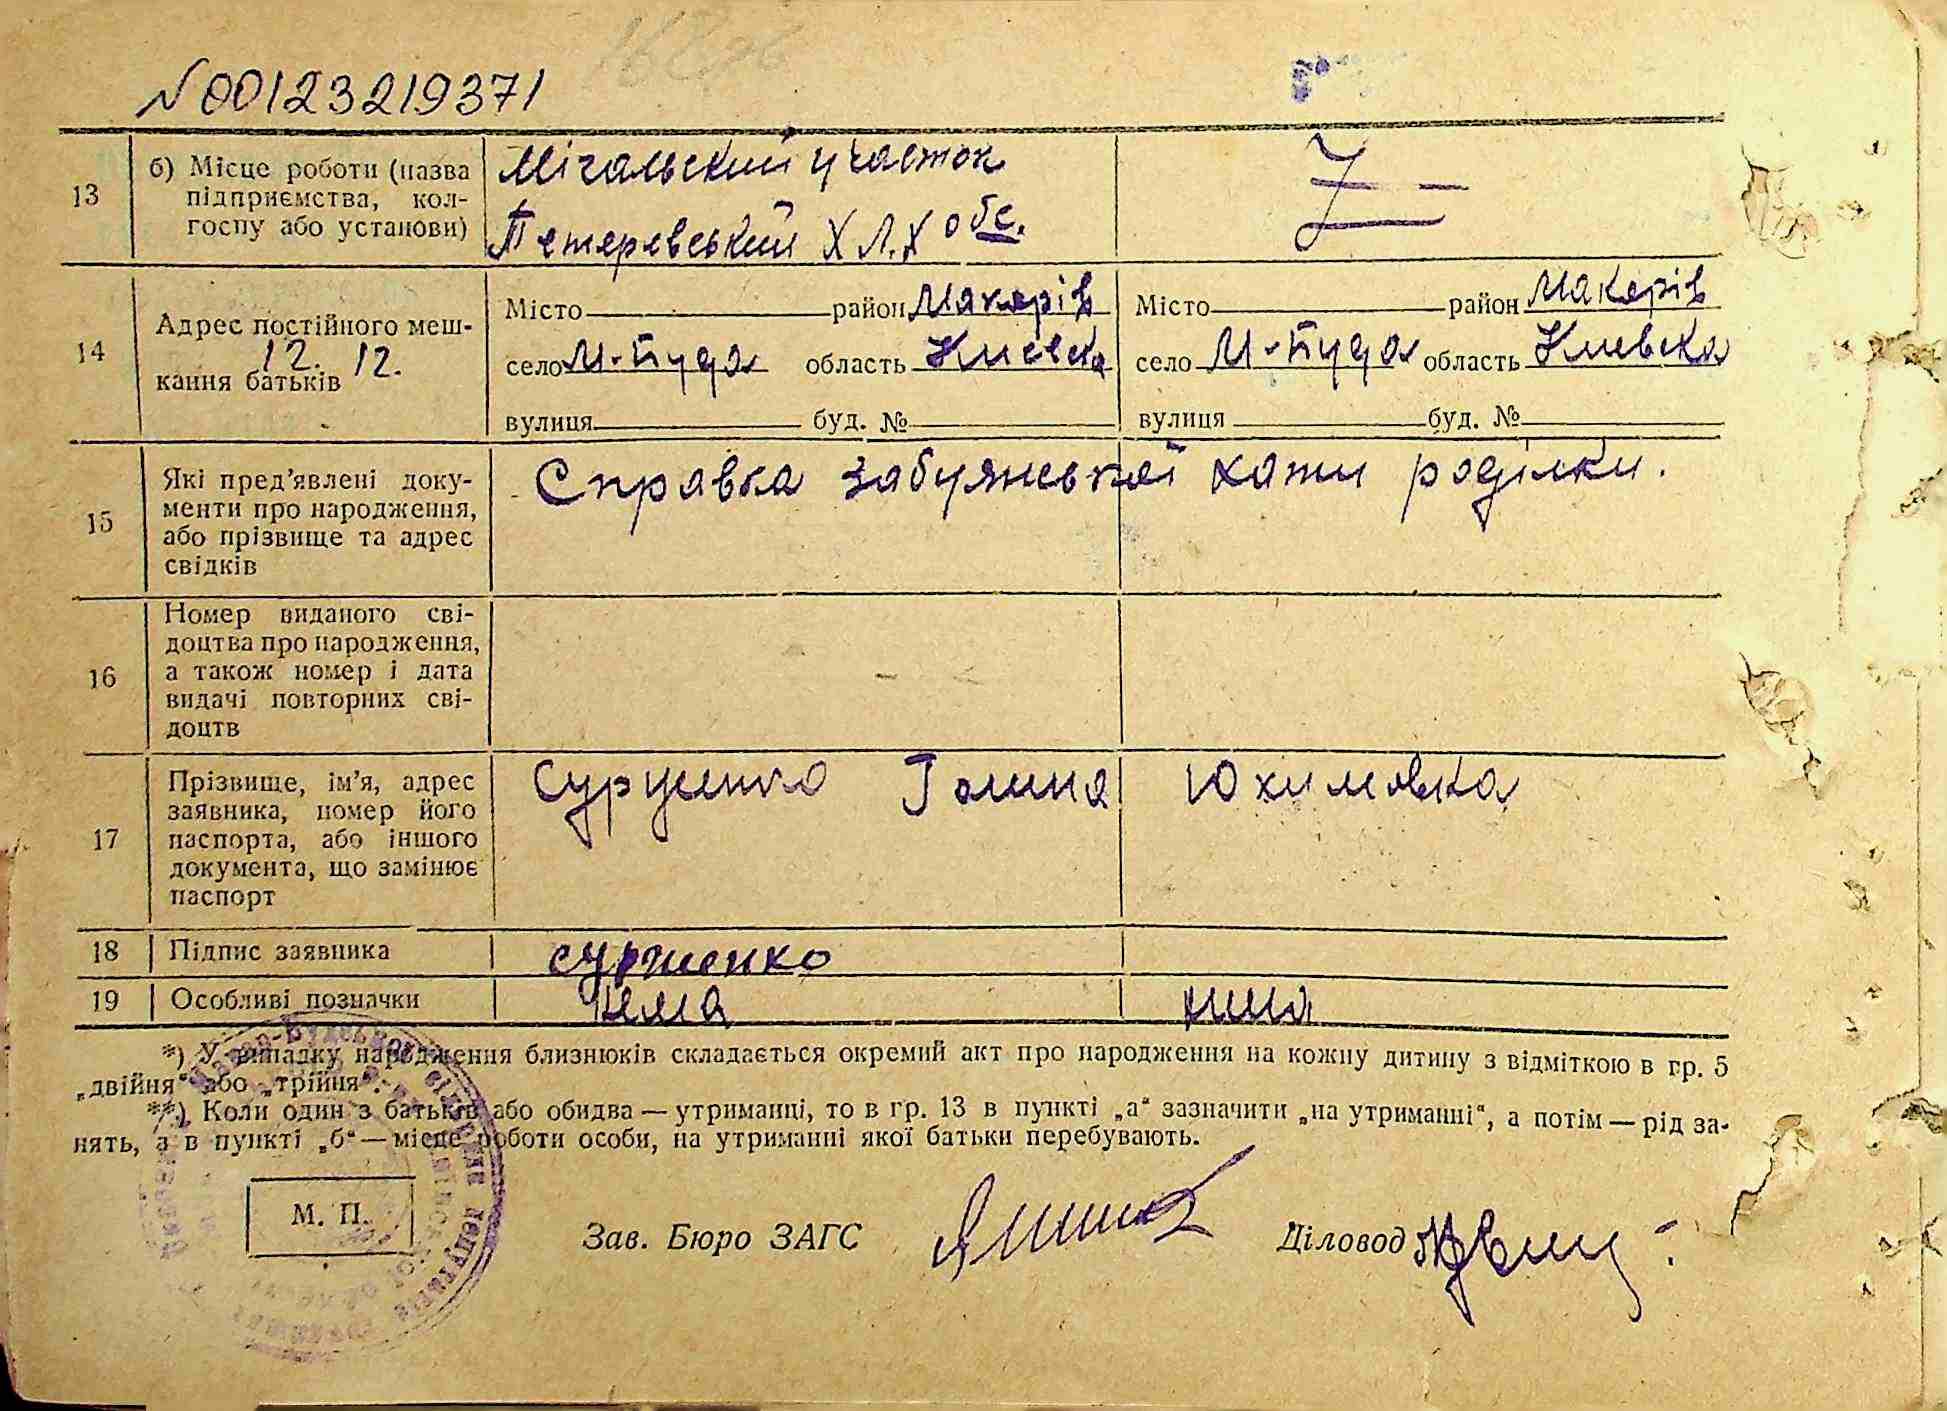 N 00123219371
13 б) Місце роботи (назва підприємства, колгоспу або установи)
Мігальський участок
Тетеревський ХЛ.Х обс.
Z
14 Адрес постійного мешкання батьків
12. 12.
Місто район Макарів
село М-Буда область Киевска
вулиця буд. №
Місто район Макарів
село М-Буда область Киевска
вулиця буд. №
15 Які пред'явлені документи про народження, або прізвище та адрес свідків
Справка Забуянської хати роділки.
16 Номер виданого свідоцтва про народження, а також номер і дата видачі повторних свідоцтв
17 Прізвище, ім'я, адрес заявника, номер його паспорта, або іншого документа, що замінює паспорт
Галина Юхимовка
18 Підпис заявника
19 Особливі позначки
нема
нима
*) У випадку народження близнюків складається окремий акт про народження на кожну дитину з відміткою в гр. 5
„двійня“ або „трійня“.
**) Коли один з батьків або обидва — утриманці, то в гр. 13 в пункті „а“ зазначити „на утриманні“, а потім — рід за-
нять, а в пункті „б“ — місце роботи особи, на утриманні якої батьки перебувають.
М. П.
Зав. Бюро ЗАГС
Діловод